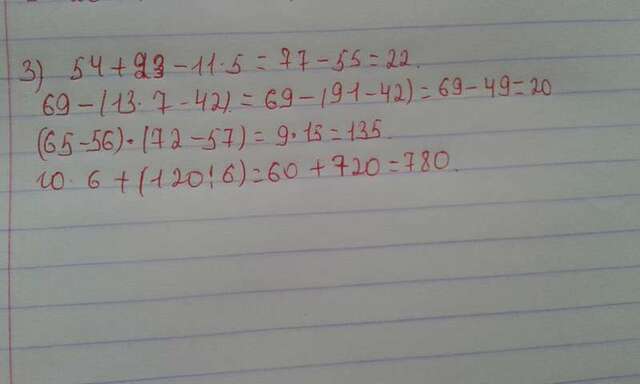 3) 54 + 23 - 11 · 5 = 77 - 55 = 22.
69 - (13 · 7 - 42) = 69 - (91 - 42) = 69 - 49 = 20
(65 - 56) · (72 - 57) = 9 · 15 = 135.
10 · 6 + (120 : 6) = 60 + 720 = 780.